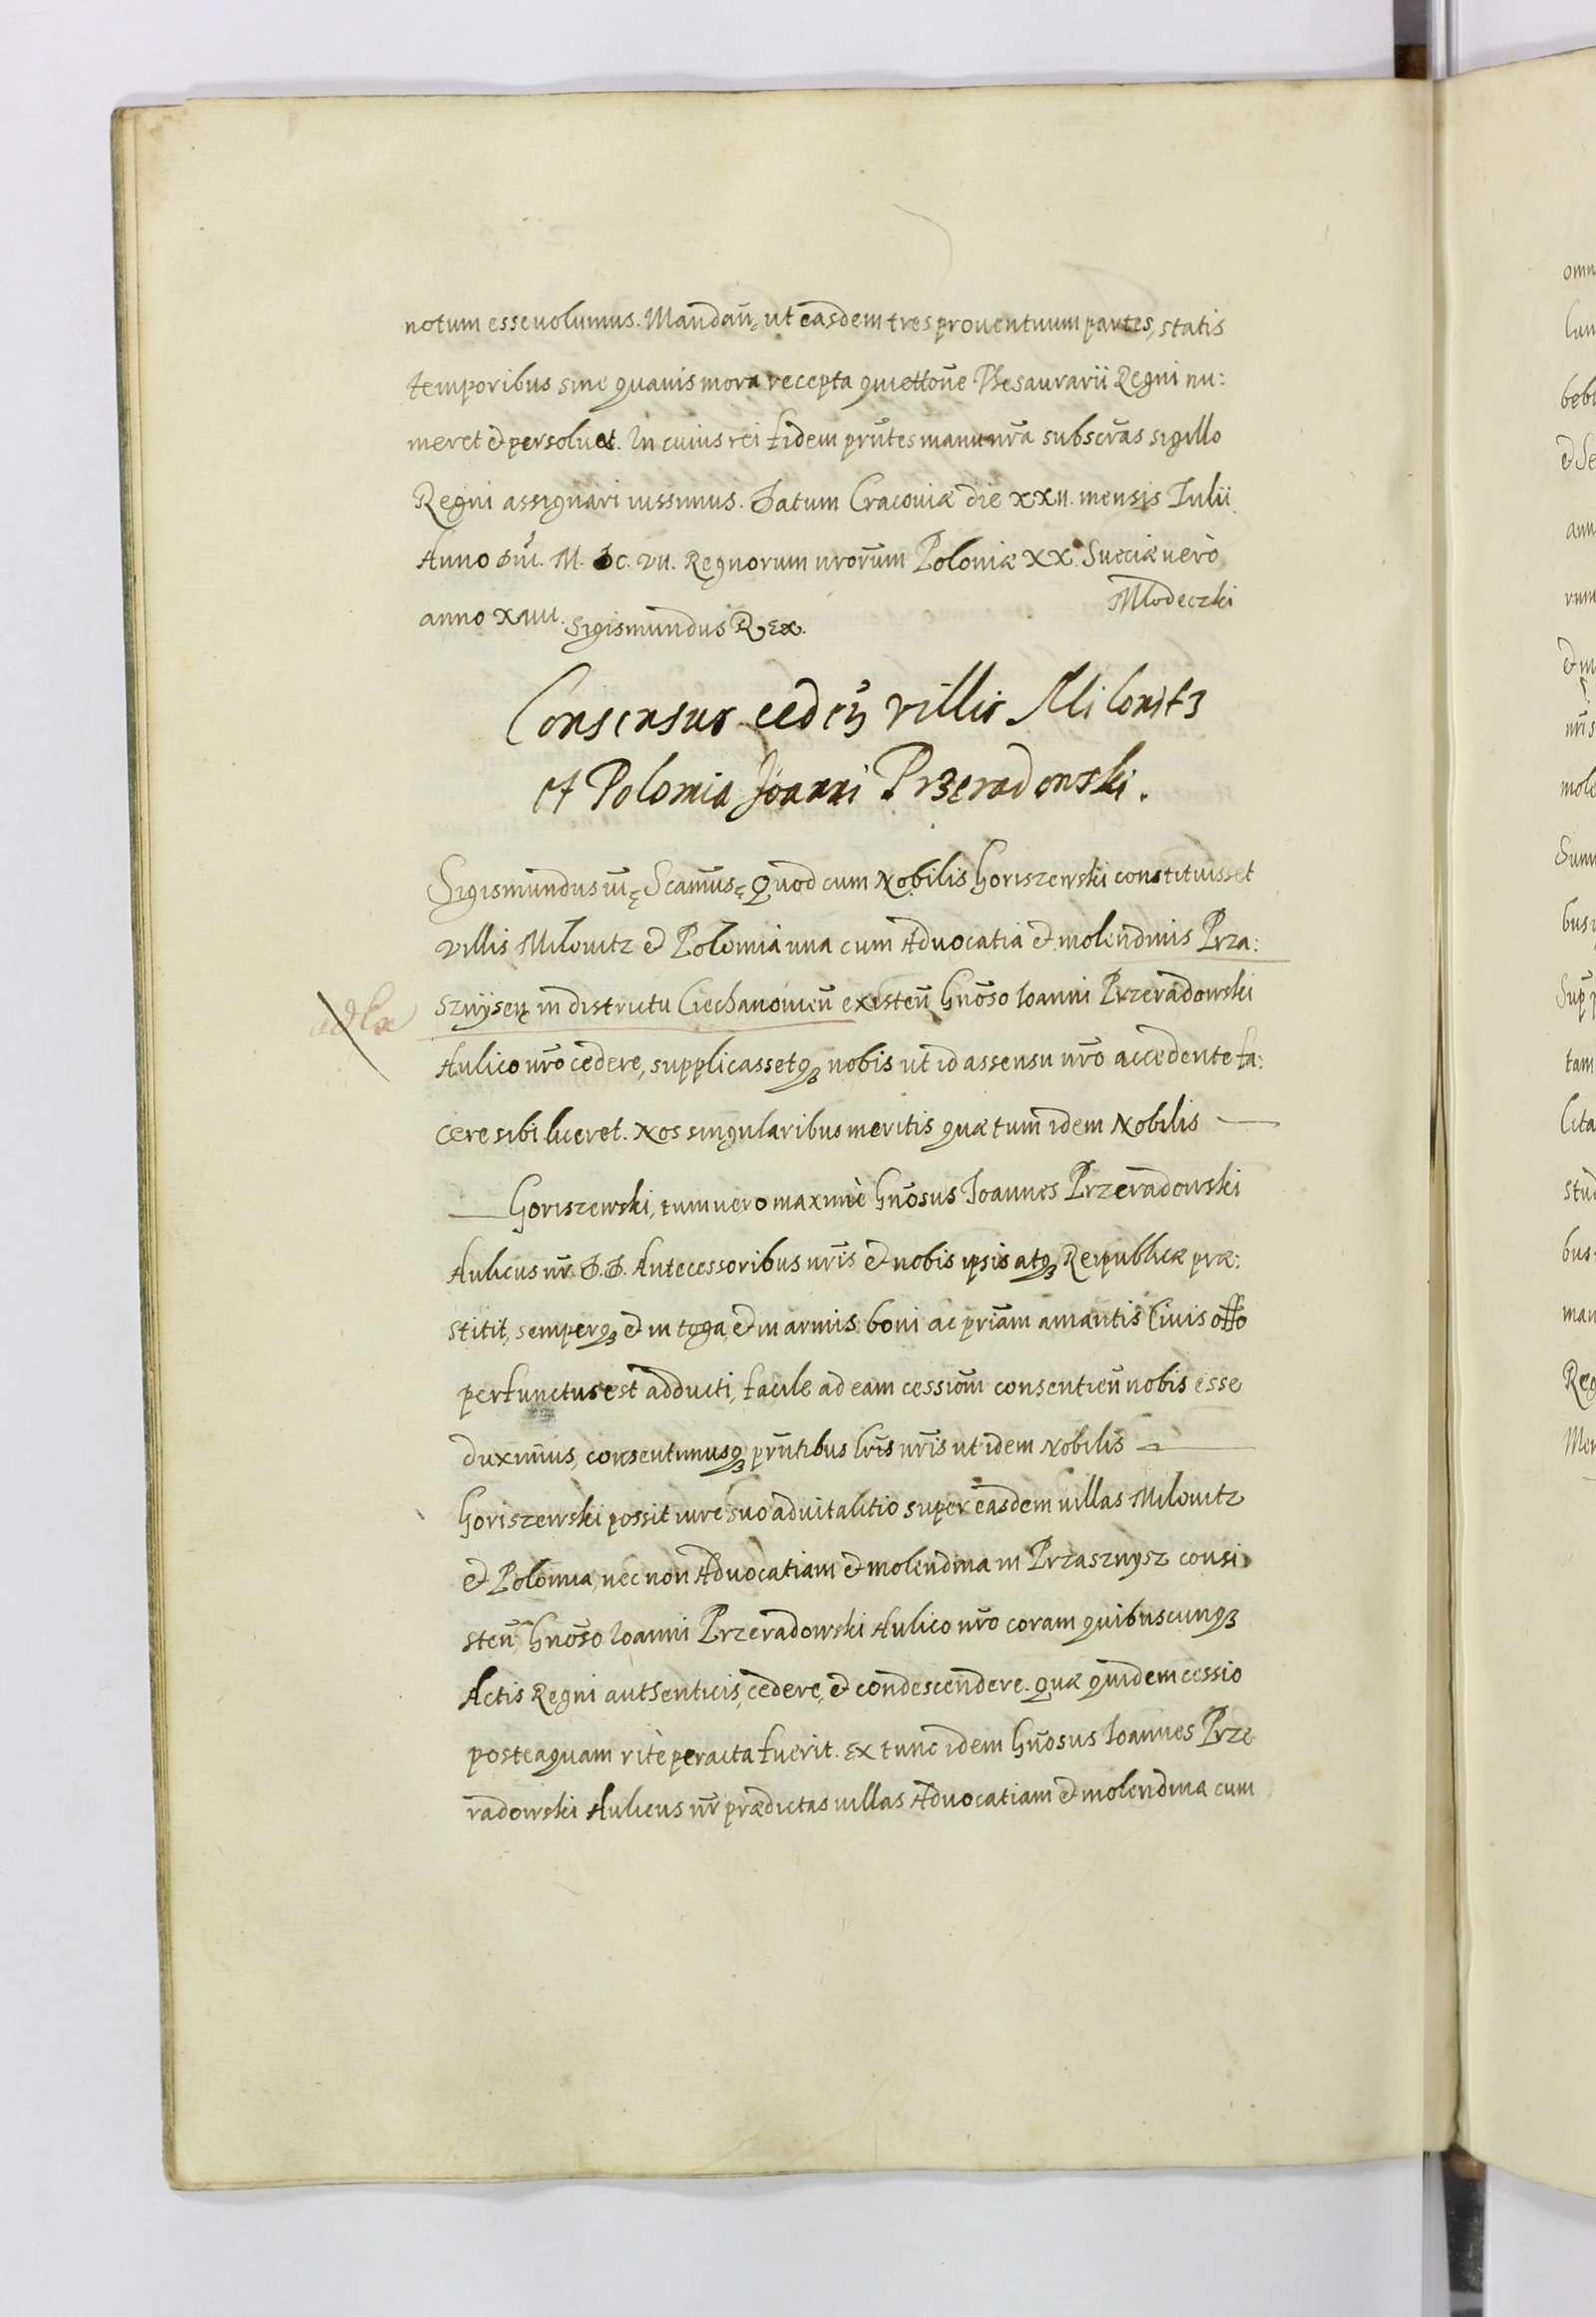 notum esse uolumus. Mandañ, ut easdem tres prouentuum partes, statis
temporibus sine quauis mora recepta quiettõne Thesaurarii Regni nu:
meret & persoluet. In cuius rei fidem pñtes manu nr̃a subscr̃as sigillo
Regni assignari iussimus. Datum Cracouiæ die XXII. mensis Iulii
Anno Dñi. M. DC. VII. Regnorum nrorũm Poloniæ XX. Sueciæ uerò
anno XIIII. Sigismundus Rex. Mlodeczki
Consensus cedeñ villis Milowitz
et Polomia Joanni Przeradowski.
Sigismundus iii, Scamus, Quod cum Nobilis Goriszewski constituisset
villis Milowitz & Polomia una cum Aduocatia & molendinis Prza:
sznÿseñ in districtu Ciechanouieñ existeñ Gnõso Ioanni Przeradowski
Aulico nr̃o cedere, supplicassetqꝫ nobis ut id assensu nr̃o accedente fa:
cere sibi liceret. Nos singularibus meritis quæ tum idem Nobilis
Goriszewski, tum uero maximè Gnõsus Ioannes Przeradowski
Aulicus nr̃. D.D. Antecessoribus nr̃is & nobis ipsis atqꝫ Reipublicæ præ:
stitit, semperqꝫ & in toga, & in armis boni ac priãm amantis Ciuis offo
perfunctus est adducti, facile ad eam cessiom̃ consentieñ nobis esse
duximus, consentimusqꝫ pñtibus lr̃is nr̃is ut idem Nobilis
Goriszewski possit iure suo aduitalitio super easdem uillas Milowitz
& Polomia, nec non Aduocatiam & molendina in Przasznysz consi
steñ Gnõso Ioanni Przeradowski Aulico nr̃o coram quibuscunqꝫ
Actis Regni authenticis, cedere, & condescendere. Quæ quidem cessio
posteaquam ritè peracta fuerit. Ex tunc idem Gnõsus Ioannes Prze
radowski Aulicus nr̃ prædictas uillas Aduocatiam & molendina cum